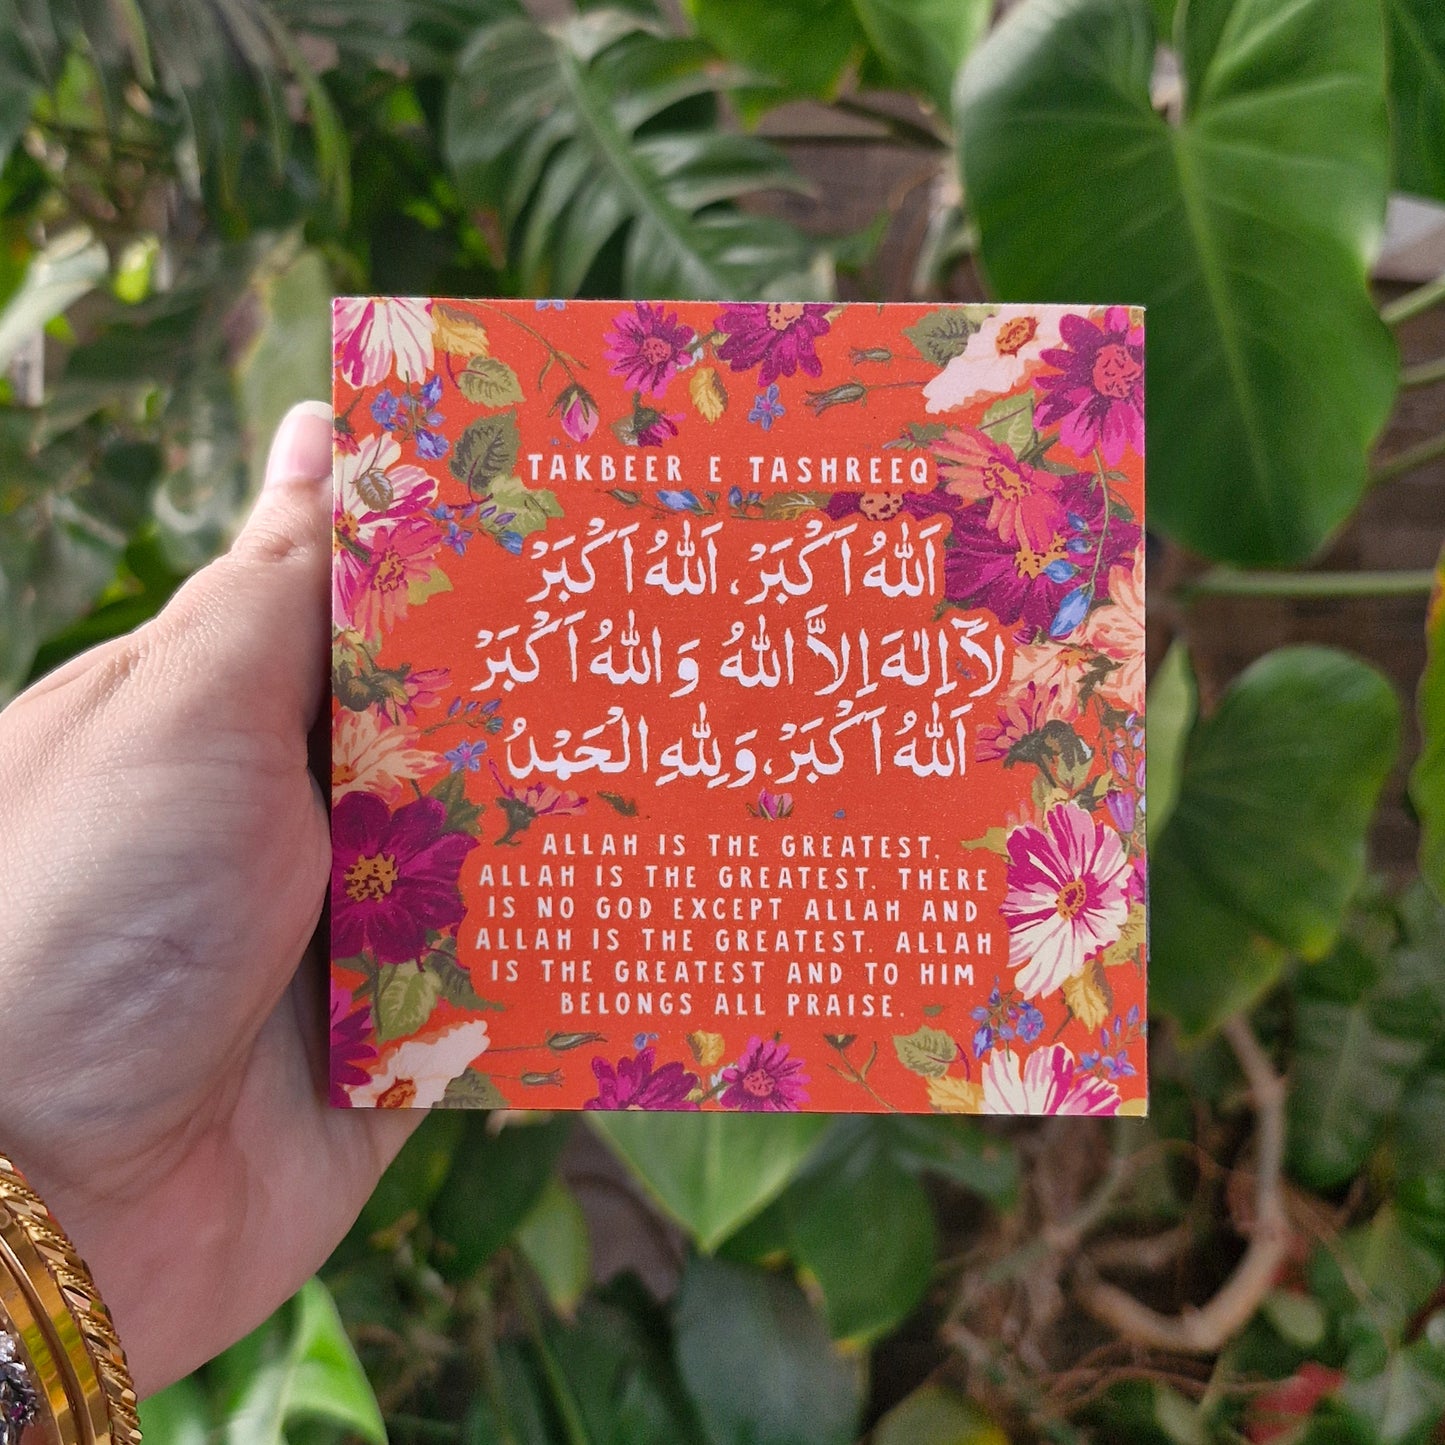 TAKBEER E TASHREEQ
اَللّٰهُ اَكْبَرْ، اَللّٰهُ اَكْبَرْ
لَآ اِلٰهَ اِلاَّ اللّٰهُ وَ اللّٰهُ اَكْبَرْ
اَللّٰهُ اَكْبَرْ، وَ لِلّٰهِ الْحَمْدُ
ALLAH IS THE GREATEST,
ALLAH IS THE GREATEST. THERE
IS NO GOD EXCEPT ALLAH AND
ALLAH IS THE GREATEST. ALLAH
IS THE GREATEST AND TO HIM
BELONGS ALL PRAISE.